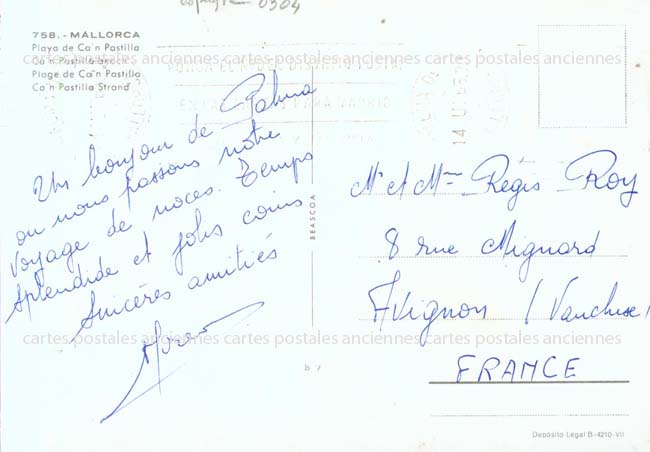 espagne 0304
758. - MALLORCA
Playa de Ca'n Pastilla
Ca'n Pastilla beach
Plage de Ca'n Pastilla
Ca'n Pastilla Strand
cartes postales anciennes cartes postales anciennes cartes postales anciennes
PONGA EL DISTRITO POSTAL
EN PARA MADRID
14 65
Un bonjour de Palma
ou nous passons notre
voyage de noces. Temps
splendide et jolis coins
Sincères amitiés
BEASCOA
Mr et Mme Régis Roy
8 rue Mignard
Avignon (Vaucluse)
FRANCE
cartes postales anciennes cartes postales anciennes cartes postales anciennes
B 7
Depósito Legal B-4210-VII